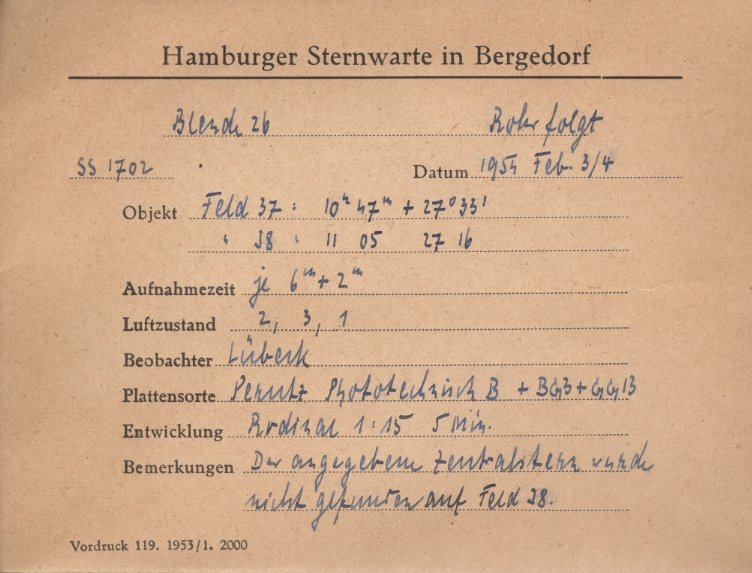 Hamburger Sternwarte in Bergedorf
Blende 26 Rohr folgt
SS 1702 Datum 1954 Feb. 3/4
Objekt Feld 37 : 10ʰ 47ᵐ + 27° 33'
" 38 : 11 05 27 16
Aufnahmezeit je 6ᵐ + 2ᵐ
Luftzustand 2, 3, 1
Beobachter Lübeck
Plattensorte Perutz Phototechnisch B + BG3 + GG13
Entwicklung Rodinal 1:15 5 Min.
Bemerkungen Der angegebene Zentralstern wurde
nicht gefunden auf Feld 38.
Vordruck 119. 1953/1. 2000